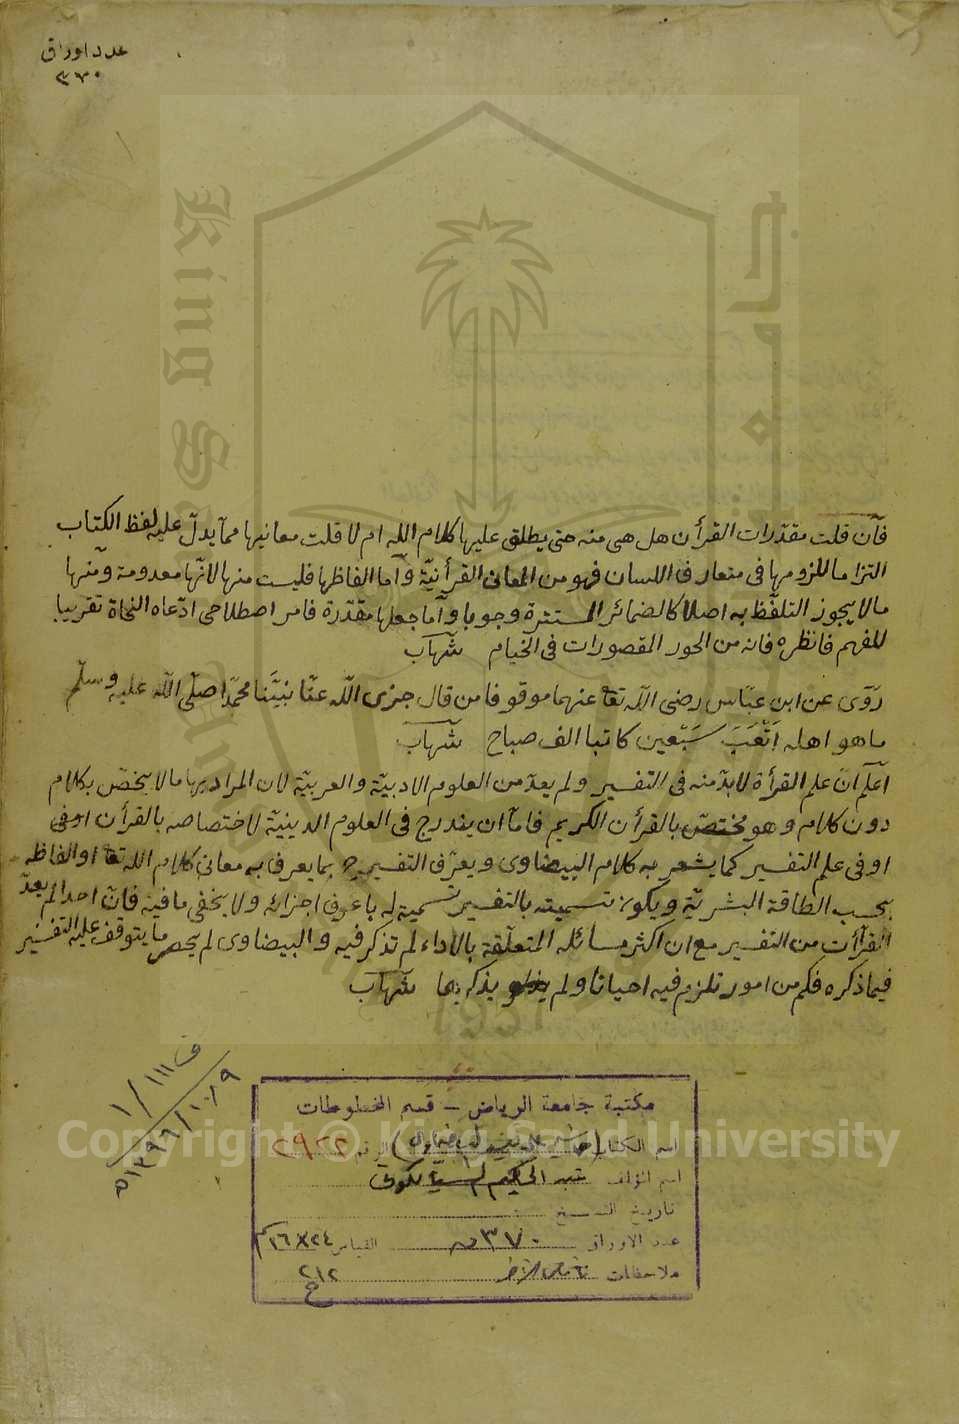 عدد اوراق
٣٧٠
فان قلت مقدّرات القرأن هل هى منه حتى يطلق عليها كلام الله ام لا قلت معانيها ممّا يدلّ عليه لفظ الكتاب
التزاما للزومها فى متعارف اللسان فهو من المعانى القرأنيّة وأما الفاظها فليست منها لانّها معدومة ومنها
مالا يجوز التلفّظ به اصلا كالضمائر المستترة وجوبا وأما جعلها مقدّرة فامر اصطلاحى ادّعاه النحاة تقريبا
للفهم فانظره فانه من الحور المقصورات فى الخيام شهاب
رَوَى عن ابن عبّاس رضى الله تعا عنهما موقوفا من قال جزى الله عنّا نبيّنا محمّدا صلّى الله عليه وسلّم
ما هو اهله اَتْعَبَ سَبْعين كاتبا الف صباح شهاب
اعلم انّ علم القرأة لابدّ منه فى التفسير ولم يعدّ من العلوم الادبيّة والعربيّة لان المراد بها مالا يختصّ بكلام
دون كلام وهو مختصّ بالقرأن الكريم فامّا ان يندرج فى العلوم الدينيّة لاختصاصه بالقرأن او فى
او فى علم التفسير كما يشعر به كلام البيضاوى ويعرّف التفسير ح بما يعرف به معانى كلام الله تعا او الفاظه
بحسب الطاقة البشريّة ويكون تسميته بالتفسير تسمية له باعرف اجزائه ولا يخفى ما فيه فانّ احدا لم يعدّ
القرأات من التفسير مع ان اكثر مسائله المتعلّقة بالاداء لم تذكر فيه والبيضاوى لم يحصر ما يتوقف عليه التفسير
فيما ذكره فكم من امور تلزم فيه احيانا ولم يذكرها شهاب
ف ١١١ / ١
١٣٩٩/١٠/٩ھ
مكتبة جامعة الرياض - قسم المخطوطات
اسم الكتاب (حاشية على تفسير البيضاوى) الرقم ٢٩٢٢
اسم المؤلف عبد الحكيم السيالكوتى
تاريخ النسخ
عدد الاوراق ٣٧٠ ق القياس ٢٤×١٦ سم
ملاحظات ناقص الآخر
٢١٢
ح
King Saud University
جامعة
1957
Copyright © King Saud University